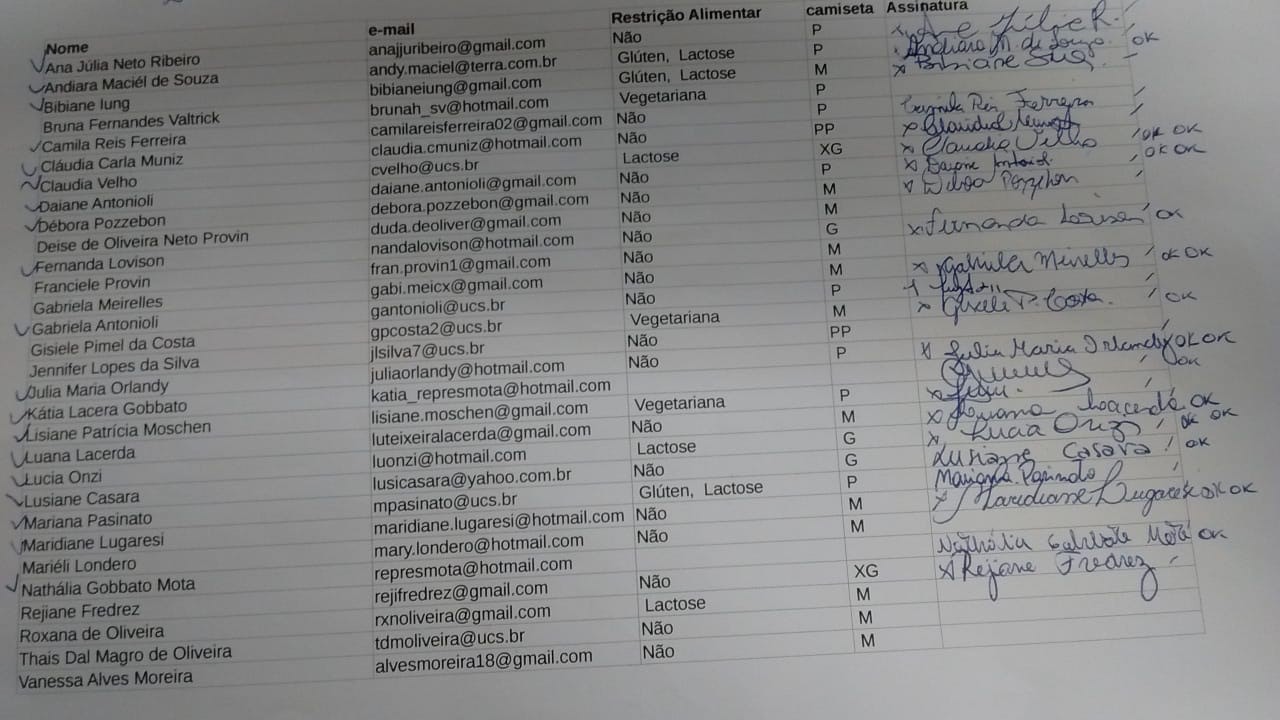 Nome e-mail Restrição Alimentar camiseta Assinatura
Ana Júlia Neto Ribeiro anajjuribeiro@gmail.com Não P
Andiara Maciél de Souza andy.maciel@terra.com.br Glúten, Lactose P Andiara M. de Souza OK
Bibiane Iung bibianeiung@gmail.com Glúten, Lactose M Bibiane
Bruna Fernandes Valtrick brunah_sv@hotmail.com Vegetariana P
Camila Reis Ferreira camilareisferreira02@gmail.com Não P Camila Reis Ferreira
Cláudia Carla Muniz claudia.cmuniz@hotmail.com Não PP
Claudia Velho cvelho@ucs.br Lactose XG Claudia Velho OK OK
Daiane Antonioli daiane.antonioli@gmail.com Não P Daiane OK OK
Débora Pozzebon debora.pozzebon@gmail.com Não M Pozzebon
Deise de Oliveira Neto Provin duda.deoliver@gmail.com Não M
Fernanda Lovison nandalovison@hotmail.com Não G Fernanda Lovison OK
Franciele Provin fran.provin1@gmail.com Não M
Gabriela Meirelles gabi.meicx@gmail.com Não M Gabriela Meirelles OK OK
Gabriela Antonioli gantonioli@ucs.br Não P
Gisiele Pimel da Costa gpcosta2@ucs.br Vegetariana M Gisiele P. Costa. OK
Jennifer Lopes da Silva jlsilva7@ucs.br Não PP
Julia Maria Orlandy juliaorlandy@hotmail.com Não P Julia Maria Orlandy OK OK
Kátia Lacera Gobbato katia_represmota@hotmail.com OK
Lisiane Patrícia Moschen lisiane.moschen@gmail.com Vegetariana P
Luana Lacerda luteixeiralacerda@gmail.com Não M Luana Lacerda OK
Lucia Onzi luonzi@hotmail.com Lactose G Lucia Onzi OK OK
Lusiane Casara lusicasara@yahoo.com.br Não G Lusiane Casara OK
Mariana Pasinato mpasinato@ucs.br Glúten, Lactose P Mariana Pasinato
Maridiane Lugaresi maridiane.lugaresi@hotmail.com Não M Maridiane Lugaresi OK OK
Mariéli Londero mary.londero@hotmail.com Não M
Nathália Gobbato Mota represmota@hotmail.com Nathália Gobbato Mota OK
Rejiane Fredrez rejifredrez@gmail.com Não XG Rejiane Fredrez
Roxana de Oliveira rxnoliveira@gmail.com Lactose M
Thais Dal Magro de Oliveira tdmoliveira@ucs.br Não M
Vanessa Alves Moreira alvesmoreira18@gmail.com Não M